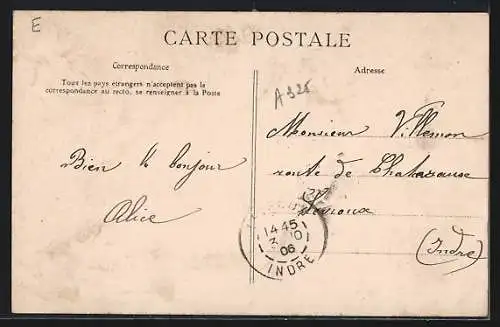 E
CARTE POSTALE
Correspondance
Adresse
Tous les pays étrangers n'acceptent pas la
correspondance au recto, se renseigner à la Poste
A 325
Monsieur Villemon
route de
Levroux
(Indre)
Bien le bonjour
Alice
1445
3 10
06
INDRE